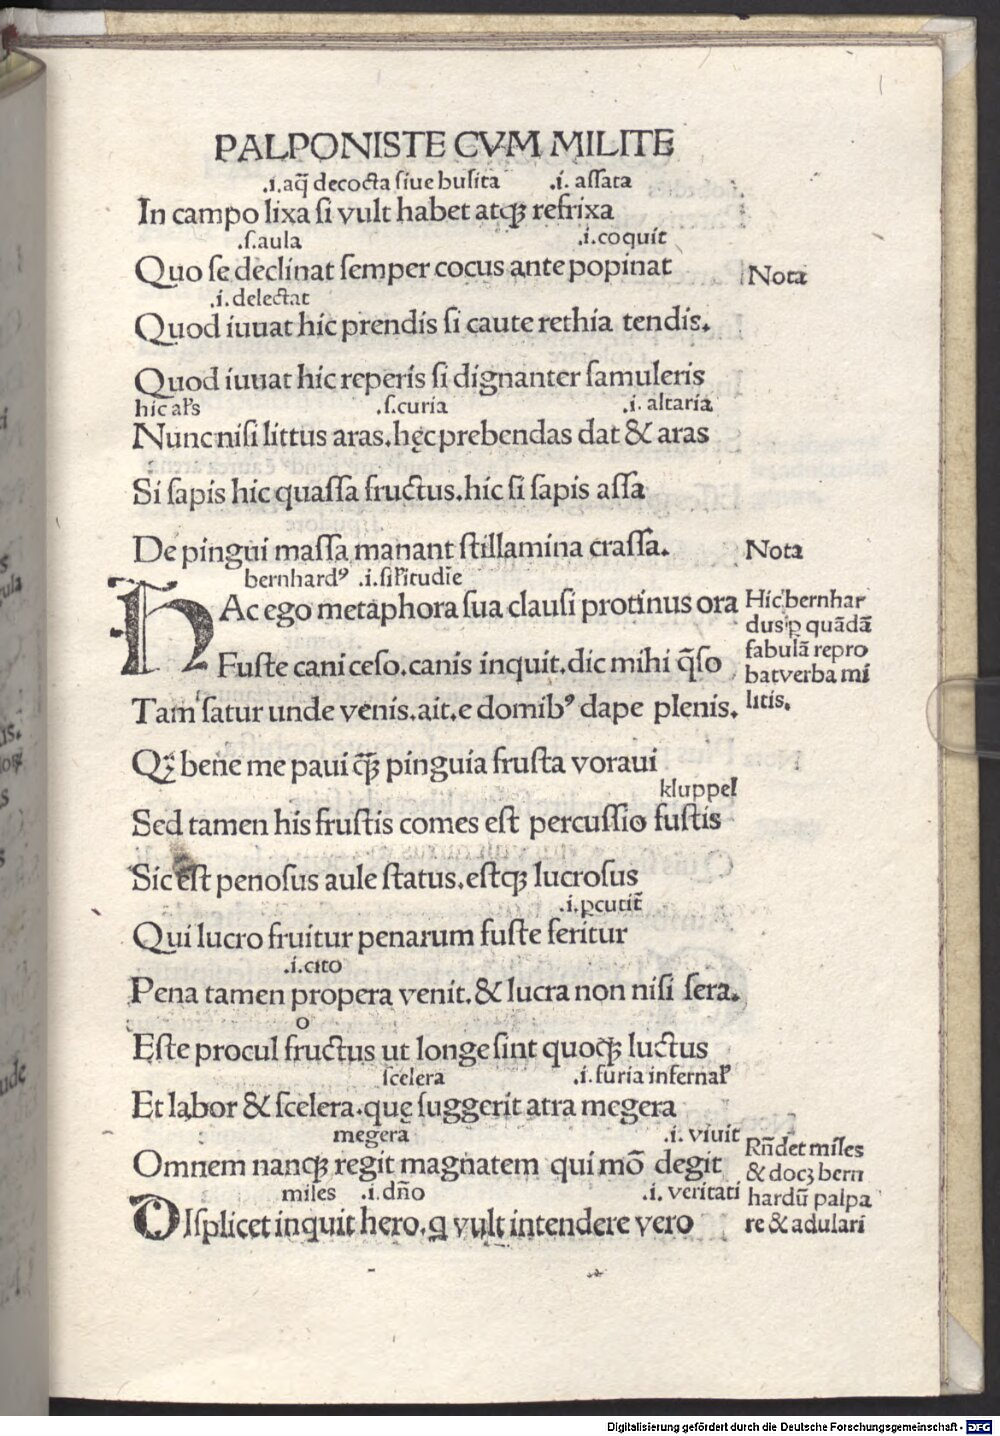 PALPONISTE CVM MILITE
.i.aq̃ decocta siue busita .i. assata
In campo lixa si vult habet atqꝫ refrixa
.s.aula .i.coquit
Quo se declinat semper cocus ante popinat
Nota
.i. delectat
Quod iuuat hic prendis si caute rethia tendis.
Quod iuuat hic reperis si dignanter famuleris
hic al̕s .s.curia .i. altaria
Nunc nisi littus aras.hęc prebendas dat & aras
Si sapis hic quassa fructus.hic si sapis assa
De pingui massa manant stillamina crassa.
Nota
bernhardꝰ .i.sil̕itudīe
HAc ego metaphora sua clausi protinus ora
Fuste cani ceso.canis inquit.dic mihi q̄so
Tam satur unde venis.ait.e domibꝰ dape plenis.
Hic bernhar
dus ꝑ quādā
fabulā repro
bat verba mi
litis.
Qꝫ bene me paui qꝫ pinguia frusta voraui
kluppel
Sed tamen his frustis comes est percussio fustis
Sic est penosus aule status.estqꝫ lucrosus
.i.ꝑcutit̃
Qui lucro fruitur penarum fuste feritur
.i.cito
Pena tamen propera venit.& lucra non nisi sera.
o
Este procul fructus ut longe sint quoqꝫ luctus
scelera .i.furia infernal̕
Et labor & scelera.quę suggerit atra megera
megera .i. viuit
Omnem nanqꝫ regit magnatem qui mō degit
miles .i.dn̄o .i. veritati
DIsplicet inquit hero.q vult intendere vero
Rn̄det miles
& docꝫ bern
hardū palpa
re & adulari
Digitalisierung gefördert durch die Deutsche Forschungsgemeinschaft - DFG